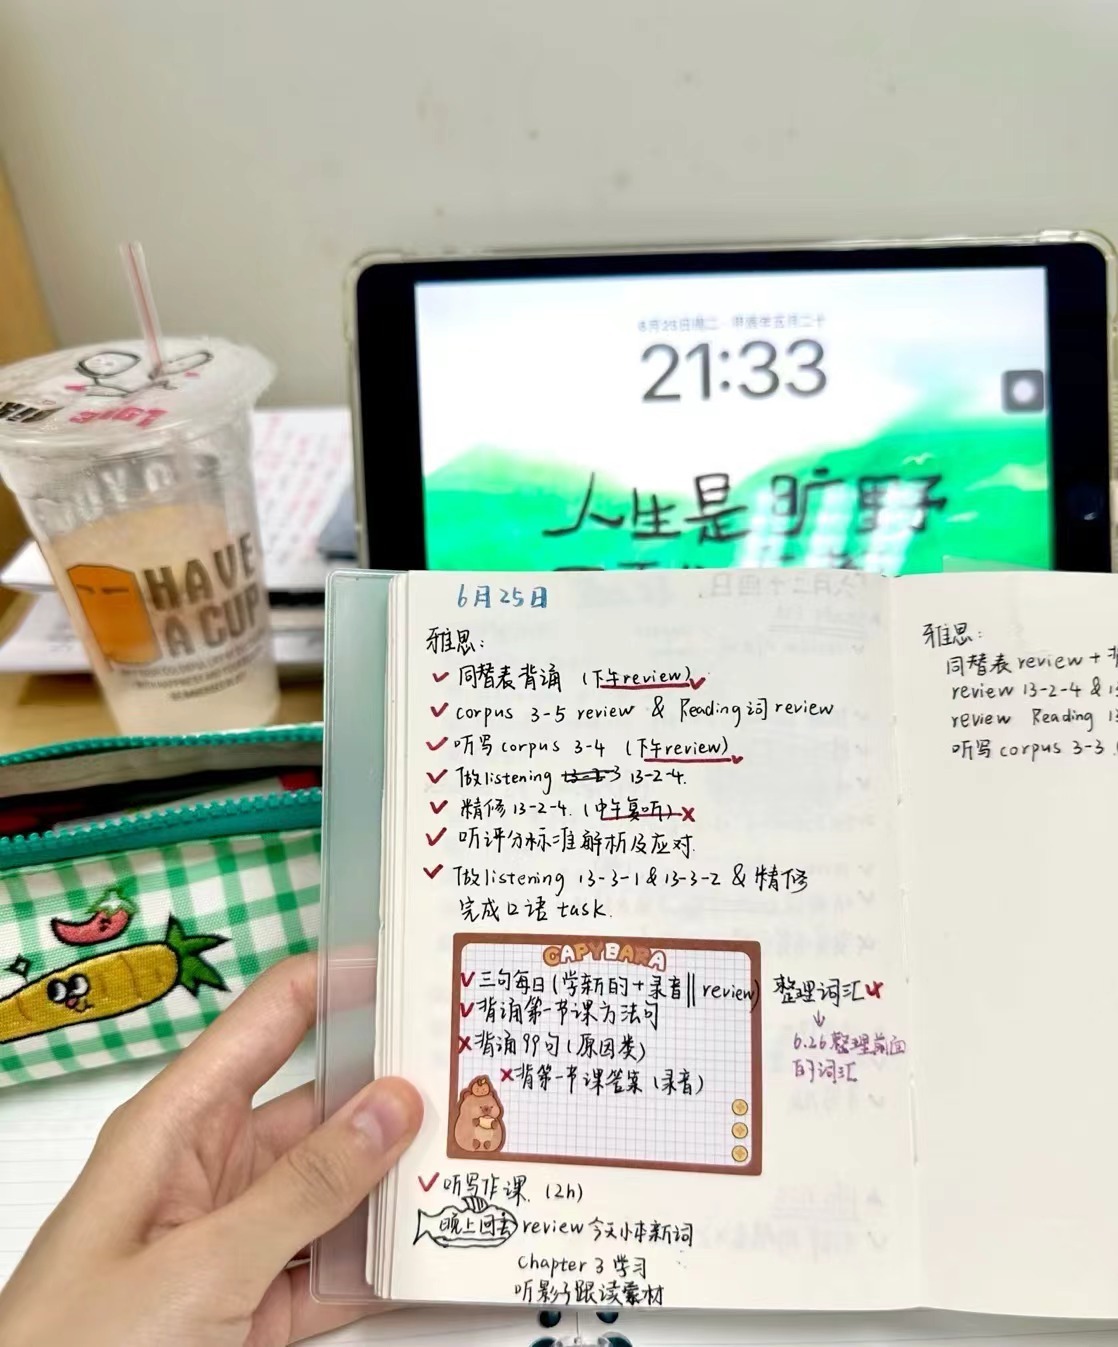 21:33
人生是旷野
HAVE
A CUP
6月25日
雅思:
✓ 同替表背诵 (下午review)✓
✓ corpus 3-5 review & Reading词 review
✓ 听写 corpus 3-4 (下午review)✓
✓ 做listening 13-2-4.
✓ 精修 13-2-4. (中午复听)✗
✓ 听评分标准解析及应对.
✓ 做listening 13-3-1 & 13-3-2 & 精修
完成口语 task.
CAPYBARA
✓ 三句每日(学新的+录音||review)
✓ 背诵第一节课方法句
✗ 背诵99句(原因类)
✗ 背第一节课答案(录音)
整理词汇✗
↓
6.26整理前面
的词汇
✓ 听写作课. (2h)
晚上回去 review 今天小本新词
chapter 3 学习
听影子跟读素材
雅思:
同替表 review +
review 13-2-4 &
review Reading
听写 corpus 3-3